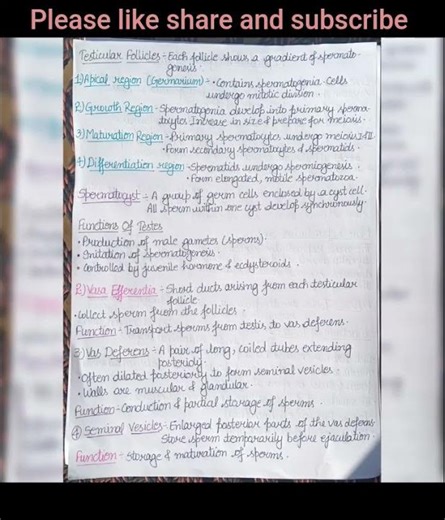 Please like share and subscribe
Testicular Follicles - Each follicle shows a gradient of spermato-
genesis.
1) Apical region (Germarium) - • Contains spermatogonia cells
undergo mitotic division.
2) Growth Region - Spermatogonia develop into primary sperma
tocytes Increase in size & prepare for meiosis.
3) Maturation Region - Primary spermatocytes undergo meiosis I-II
• Form secondary spermatocytes & spermatids.
4) Differentiation region - Spermatids undergo spermiogenesis.
• Form elongated, motile spermatozoa.
Spermatocyst - A group of germ cells enclosed by a cyst cell.
All sperm within one cyst develop synchronously.
Functions Of Testes
• Production of male gametes (sperms).
• Initiation of spermatogenesis.
• Controlled by juvenile hormone & ecdysteroids.
2) Vasa Efferentia - Short ducts arising from each testicular
follicle
• Collect sperm from the follicles.
Function - Transport sperms from testis to vas deferens.
3) Vas Deferens - A pair of long, coiled tubes extending
posteriorly.
• Often dilated posteriorly to form seminal vesicles.
• Walls are muscular & glandular.
Function - Conduction & partial storage of sperms.
4) Seminal Vesicles - Enlarged posterior parts of the vas deferens.
Store sperm temporarily before ejaculation.
Function - Storage & maturation of sperms.